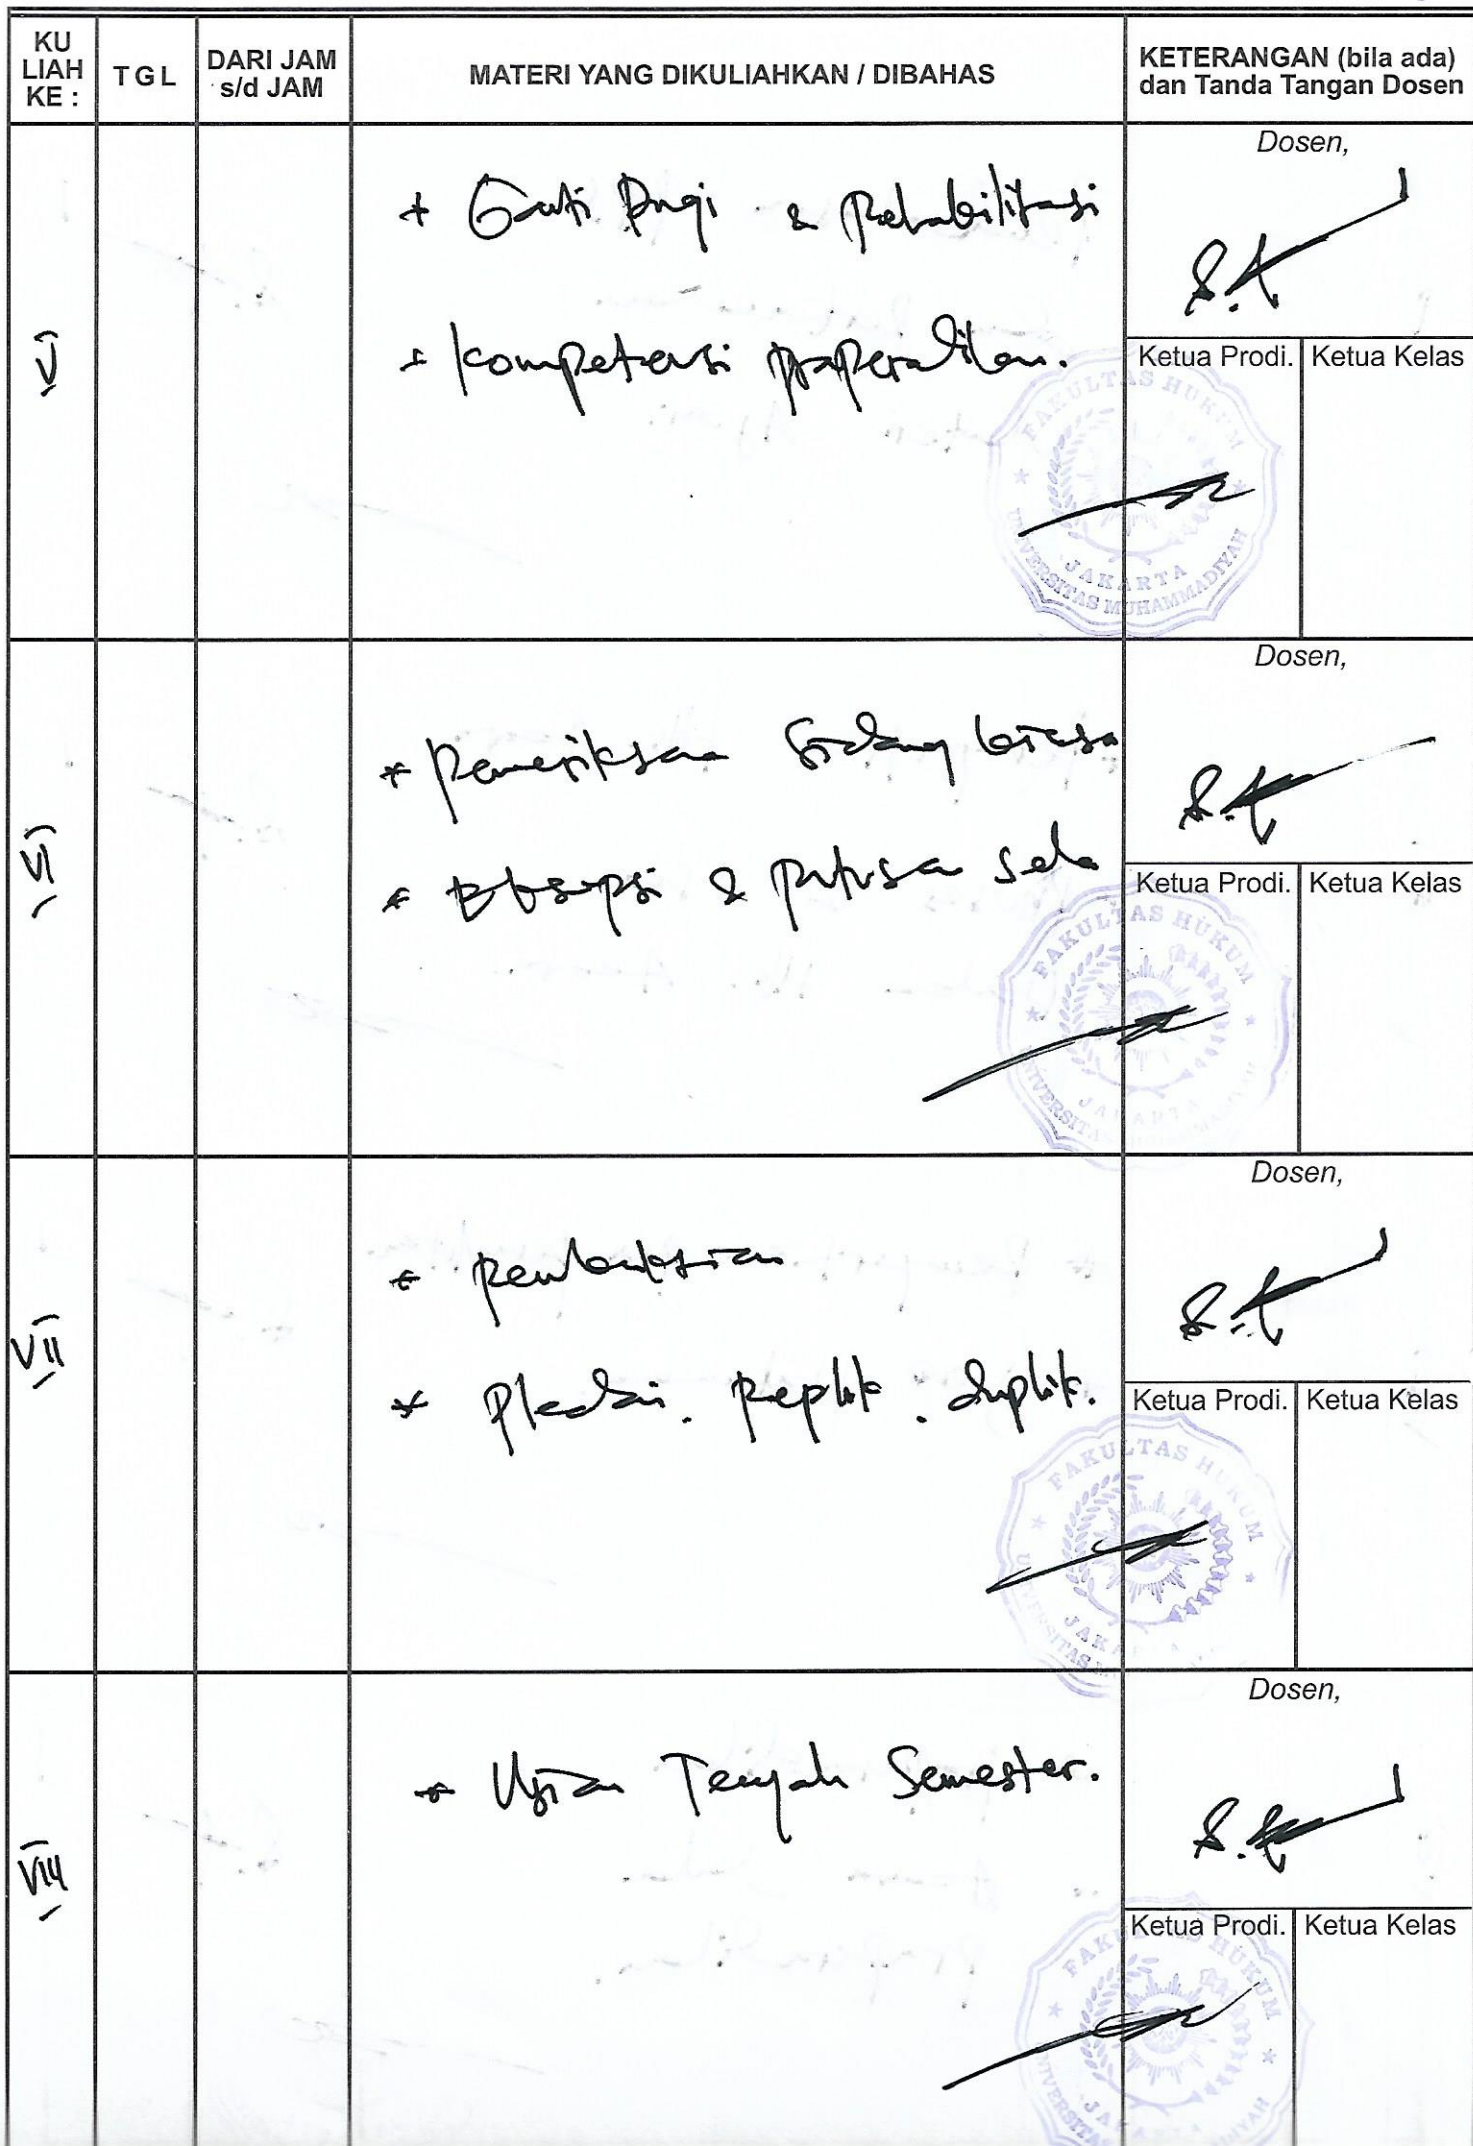 KU
LIAH
KE :
TGL
DARI JAM
s/d JAM
MATERI YANG DIKULIAHKAN / DIBAHAS
KETERANGAN (bila ada)
dan Tanda Tangan Dosen
V
+ Ganti Rugi & Rehabilitasi
* Kompetensi praperadilan.
Dosen,
Ketua Prodi.
Ketua Kelas
FAKULTAS HUKUM
UNIVERSITAS MUHAMMADIYAH
JAKARTA
VI
* Pemeriksaan Sidang biasa
* Eksepsi & putusan sela
Dosen,
Ketua Prodi.
Ketua Kelas
FAKULTAS HUKUM
UNIVERSITAS
JAKARTA
VII
* Pembuktian
* Pledoi. Replik. duplik.
Dosen,
Ketua Prodi.
Ketua Kelas
FAKULTAS HUKUM
VIII
* Ujian Tengah Semester.
Dosen,
Ketua Prodi.
Ketua Kelas
HUKUM